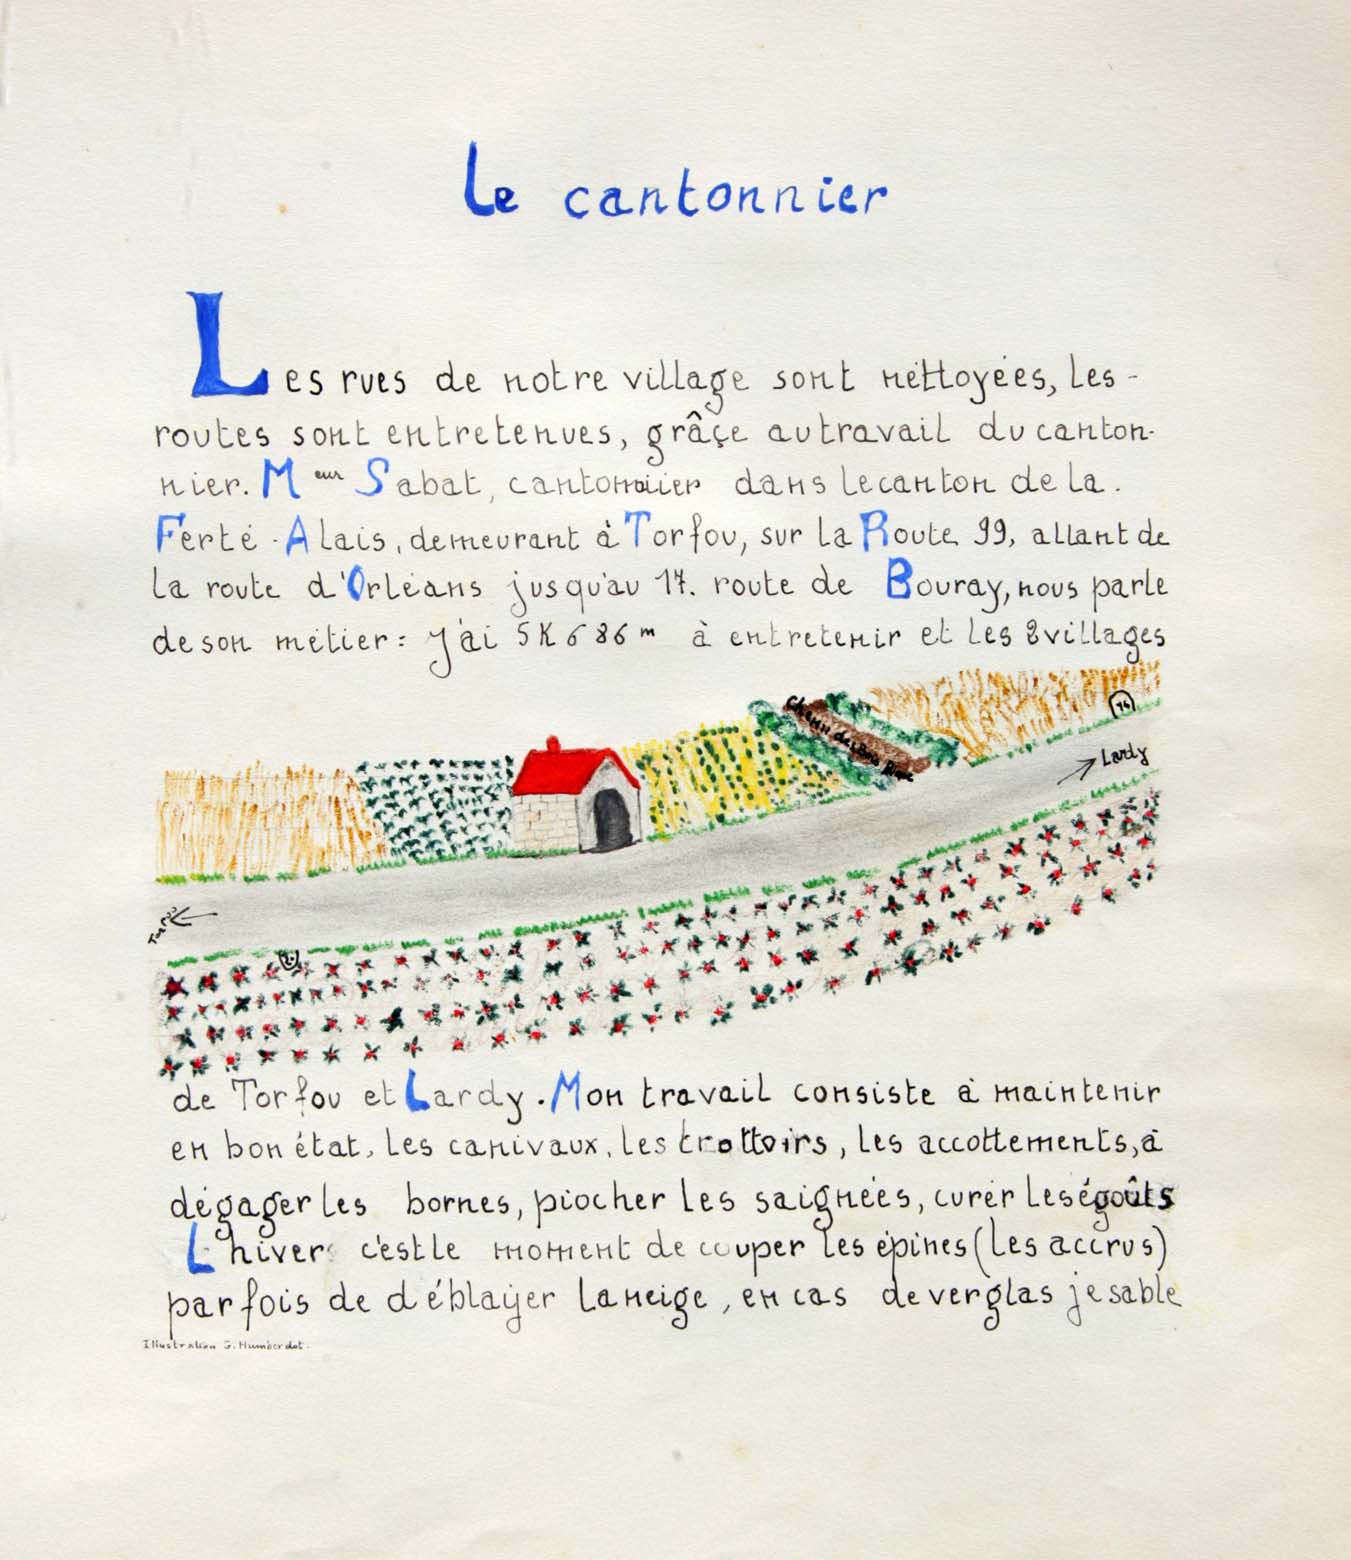 Le cantonnier
Les rues de notre village sont nettoyées, les -
routes sont entretenues, grâçe au travail du canton-
nier. Meur Sabat, cantonnier dans le canton de la.
Ferté-Alais, demeurant à Torfou, sur la Route 99, allant de
la route d'Orléans jusqu'au 17. route de Bouray, nous parle
de son métier: J'ai 5K686m à entretenir et les 2 villages
Chemin des Bois
Lardy
de Torfou et Lardy. Mon travail consiste à maintenir
en bon état, les canivaux, les trottoirs, les accottements, à
dégager les bornes, piocher les saignées, curer les égoûts
L'hiver c'est le moment de couper les épines (les accrus)
parfois de déblayer la neige, en cas de verglas je sable
Illustration G. Humberdot.